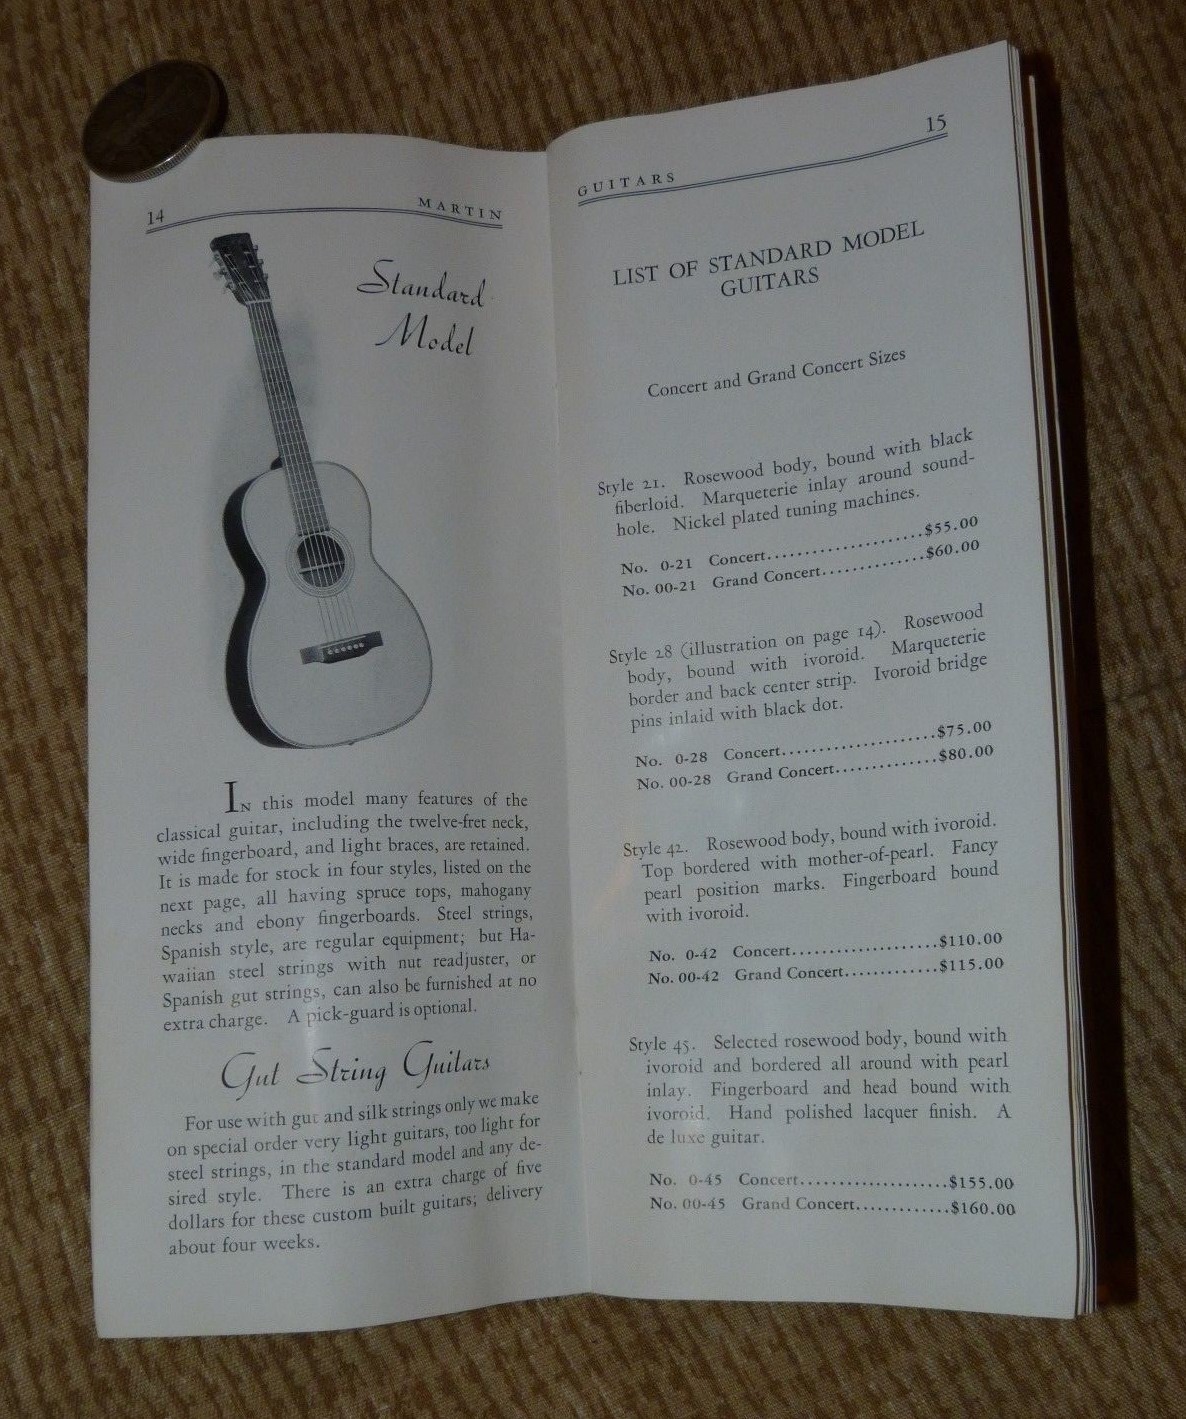 14
MARTIN
Standard
Model
IN this model many features of the
classical guitar, including the twelve-fret neck,
wide fingerboard, and light braces, are retained.
It is made for stock in four styles, listed on the
next page, all having spruce tops, mahogany
necks and ebony fingerboards. Steel strings,
Spanish style, are regular equipment; but Ha-
waiian steel strings with nut readjuster, or
Spanish gut strings, can also be furnished at no
extra charge. A pick-guard is optional.
Gut String Guitars
For use with gut and silk strings only we make
on special order very light guitars, too light for
steel strings, in the standard model and any de-
sired style. There is an extra charge of five
dollars for these custom built guitars; delivery
about four weeks.
GUITARS
15
LIST OF STANDARD MODEL
GUITARS
Concert and Grand Concert Sizes
Style 21. Rosewood body, bound with black
fiberloid. Marqueterie inlay around sound-
hole. Nickel plated tuning machines.
No. 0-21 Concert....................$55.00
No. 00-21 Grand Concert.............$60.00
Style 28 (illustration on page 14). Rosewood
body, bound with ivoroid. Marqueterie
border and back center strip. Ivoroid bridge
pins inlaid with black dot.
No. 0-28 Concert....................$75.00
No. 00-28 Grand Concert.............$80.00
Style 42. Rosewood body, bound with ivoroid.
Top bordered with mother-of-pearl. Fancy
pearl position marks. Fingerboard bound
with ivoroid.
No. 0-42 Concert...................$110.00
No. 00-42 Grand Concert............$115.00
Style 45. Selected rosewood body, bound with
ivoroid and bordered all around with pearl
inlay. Fingerboard and head bound with
ivoroid. Hand polished lacquer finish. A
de luxe guitar.
No. 0-45 Concert...................$155.00
No. 00-45 Grand Concert............$160.00